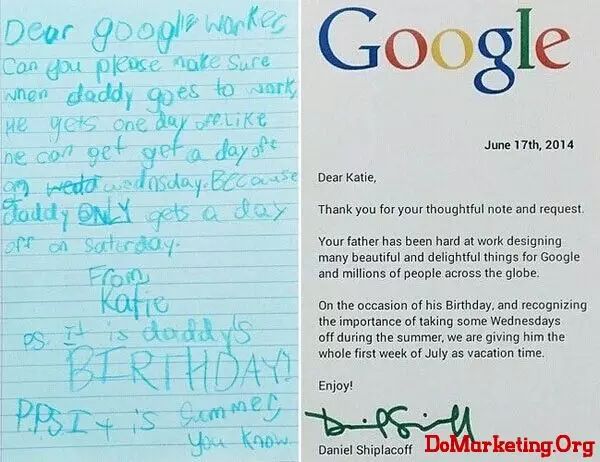 Dear google worker,
Can you please make sure
when daddy goes to work,
He gets one day off. Like
he can get get a day off
on wednsday. Because
daddy ONLY gets a day
off on Saturday.
From,
Katie
P.S. It is daddy's
BIRTHDAY!
P.P.S It is summer,
you know
Google
June 17th, 2014
Dear Katie,
Thank you for your thoughtful note and request.
Your father has been hard at work designing
many beautiful and delightful things for Google
and millions of people across the globe.
On the occasion of his Birthday, and recognizing
the importance of taking some Wednesdays
off during the summer, we are giving him the
whole first week of July as vacation time.
Enjoy!
Daniel Shiplacoff
DoMarketing.Org